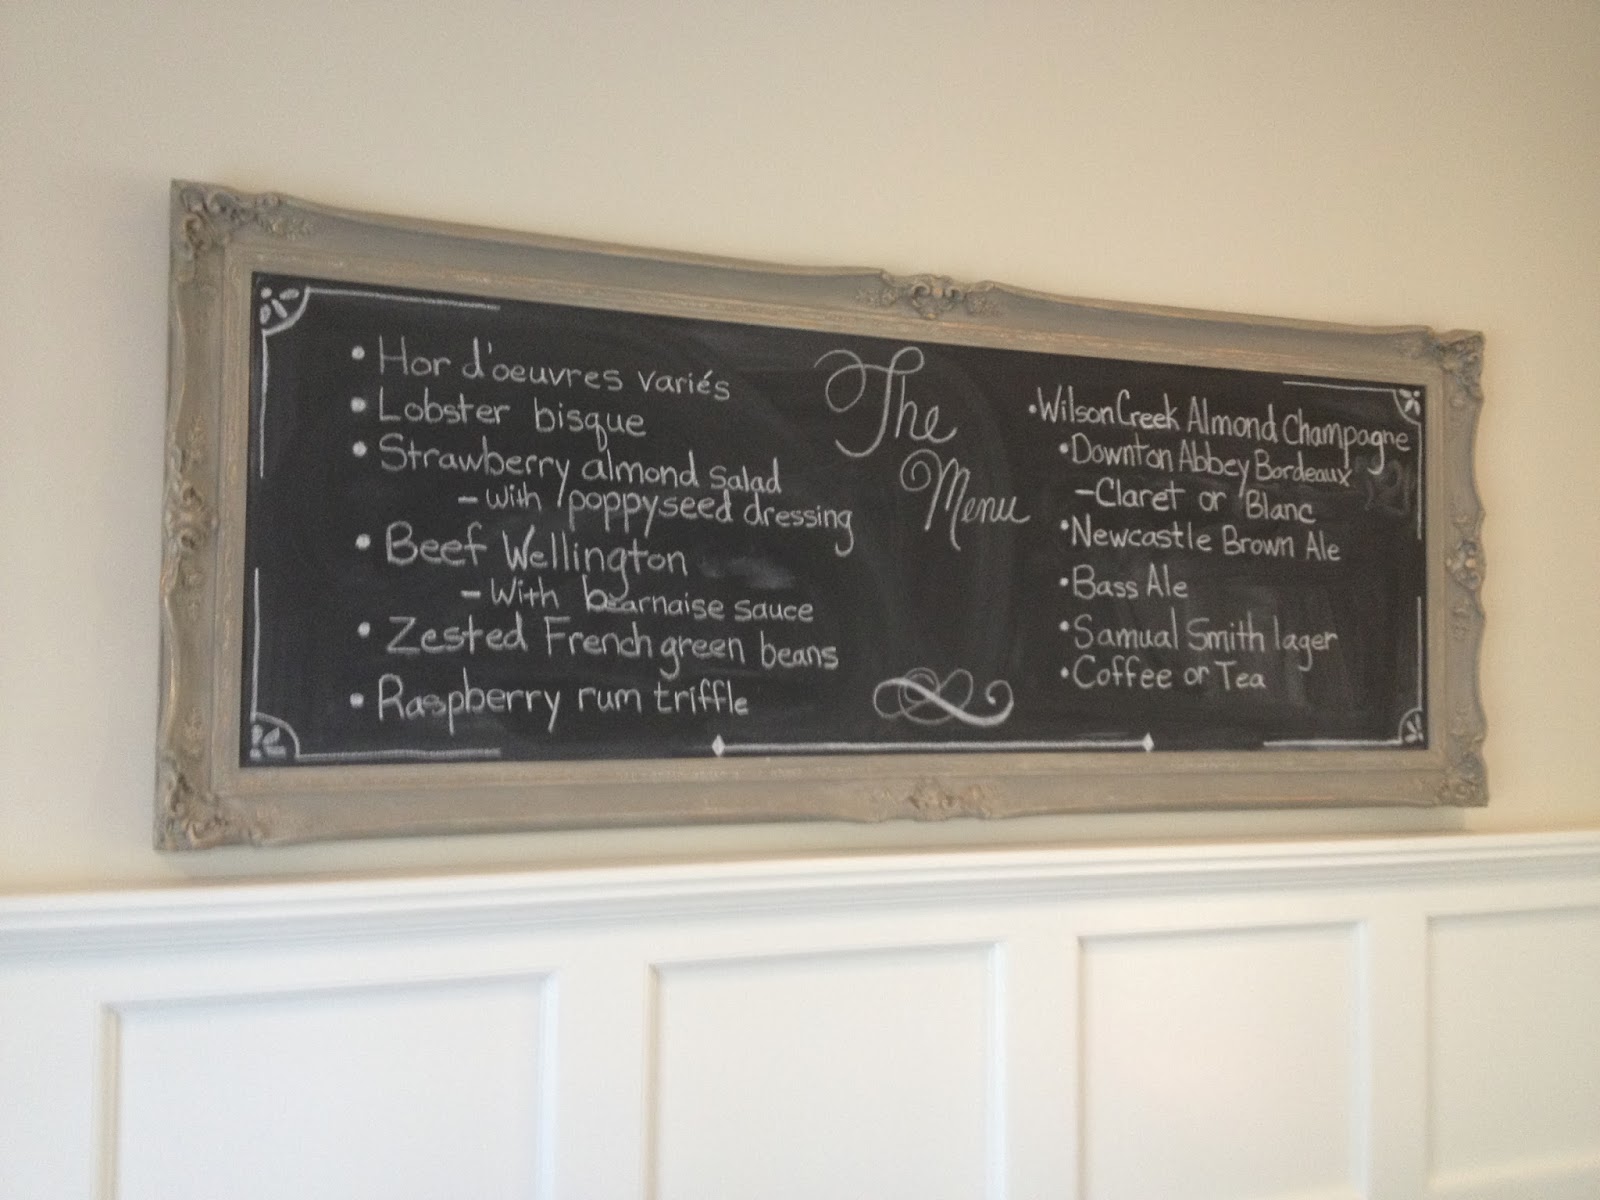 The
Menu
• Hor d'oeuvres variés
• Lobster bisque
• Strawberry almond salad
- with poppyseed dressing
• Beef Wellington
- With bearnaise sauce
• Zested French green beans
• Raspberry rum triffle
• Wilson Creek Almond Champagne
• Downton Abbey Bordeaux
- Claret or Blanc
• Newcastle Brown Ale
• Bass Ale
• Samual Smith lager
• Coffee or Tea